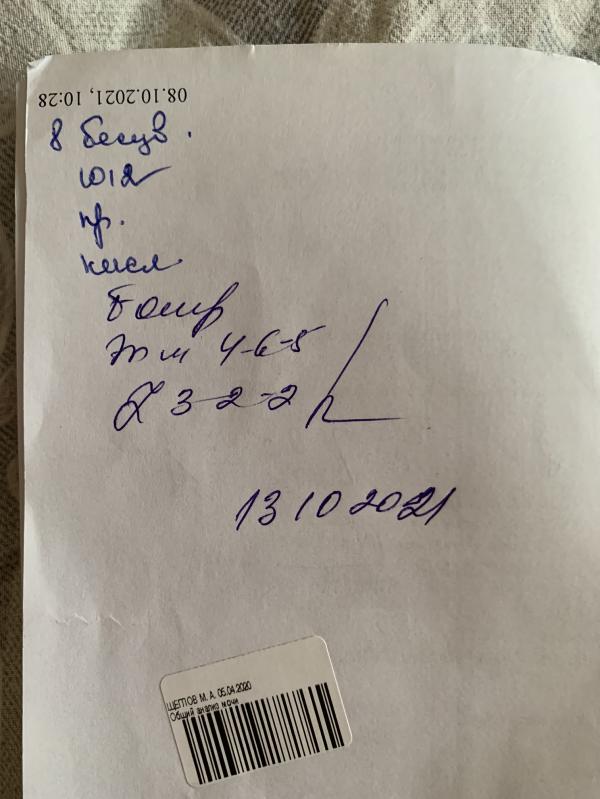 08.10.2021, 10:28
8 бесцв.
1012
пр.
кисл
б отр
Эп ед 4-6-5
L 3-2-2
13 10 2021
ЩЕГЛОВ М. А. 05.04.2020
Общий анализ мочи